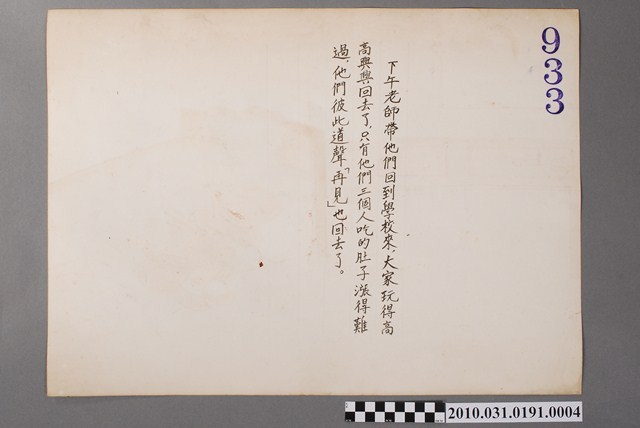 933
下午老師帶他們回到學校來，大家玩得高
高興興回去了，只有他們三個人吃的肚子漲得難
過，他們彼此道聲「再見」也回去了。
2010.031.0191.0004